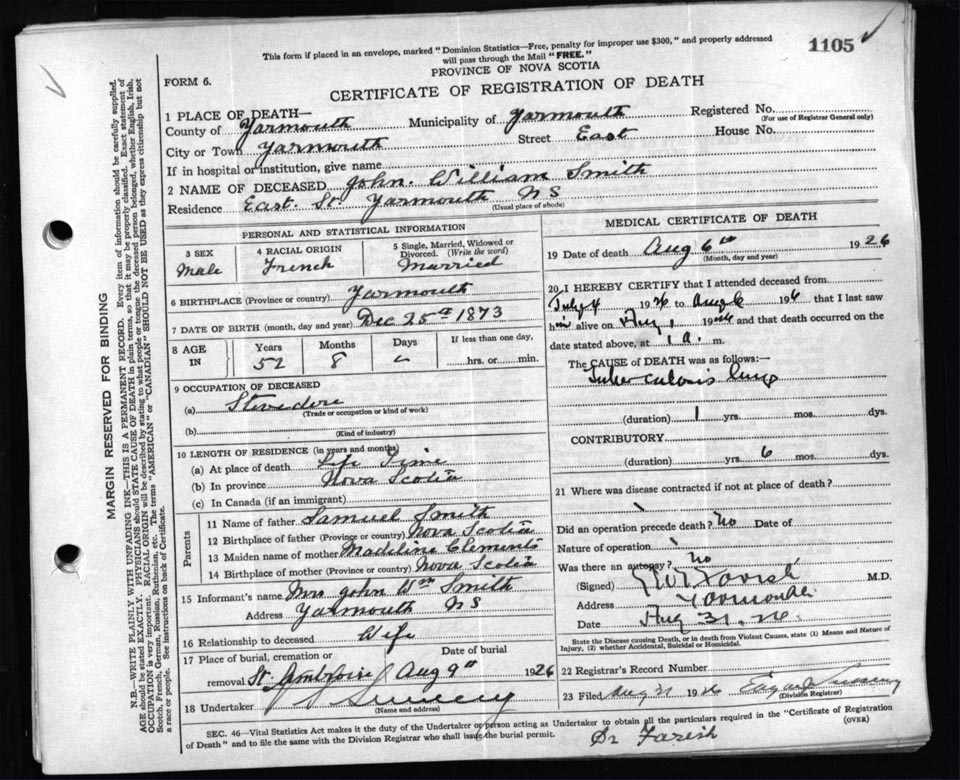 This form if placed in an envelope, marked "Dominion Statistics—Free, penalty for improper use $300," and properly addressed
will pass through the Mail "FREE."
1105
PROVINCE OF NOVA SCOTIA
FORM 6.
CERTIFICATE OF REGISTRATION OF DEATH
1 PLACE OF DEATH—
County of Yarmouth Municipality of Yarmouth Registered No.
(For use of Registrar General only)
City or Town Yarmouth Street East House No.
If in hospital or institution, give name
2 NAME OF DECEASED John. William Smith
Residence East. St. Yarmouth NS
(Usual place of abode)
PERSONAL AND STATISTICAL INFORMATION
3 SEX 4 RACIAL ORIGIN 5 Single, Married, Widowed or Divorced. (Write the word)
Male French Married
6 BIRTHPLACE (Province or country) Yarmouth
7 DATE OF BIRTH (month, day and year) Dec 25th 1873
8 AGE IN Years Months Days If less than one day,
52 8 hrs. or min.
9 OCCUPATION OF DECEASED
(a) Stevedore
(Trade or occupation or kind of work)
(b)
(Kind of industry)
10 LENGTH OF RESIDENCE (in years and months)
(a) At place of death Life Time
(b) In province Nova Scotia
(c) In Canada (if an immigrant)
Parents
11 Name of father Samuel Smith
12 Birthplace of father (Province or country) Nova Scotia
13 Maiden name of mother Madeline Clements
14 Birthplace of mother (Province or country) Nova Scotia
15 Informant's name Mrs John Wm Smith
Address Yarmouth NS
16 Relationship to deceased Wife
17 Place of burial, cremation or removal Date of burial
St. Ambroise Aug 9th 1926
18 Undertaker Sweeny
(Name and address)
MEDICAL CERTIFICATE OF DEATH
19 Date of death Aug 6th 1926
(Month, day and year)
20 I HEREBY CERTIFY that I attended deceased from
July 4 1926 to Aug 6 1926 that I last saw
him alive on Aug, 1926 and that death occurred on the
date stated above, at 1 a. m.
The CAUSE OF DEATH was as follows:—
Tuberculosis lung
(duration) 1 yrs. mos. dys.
CONTRIBUTORY
(duration) yrs. 6 mos. dys.
21 Where was disease contracted if not at place of death?
Did an operation precede death? No Date of
Nature of operation
Was there an autopsy? No
(Signed) Farish M.D.
Address Yarmouth
Date Aug 31. 26.
State the Disease causing Death, or in death from Violent Causes, state (1) Means and Nature of
Injury, (2) whether Accidental, Suicidal or Homicidal.
22 Registrar's Record Number
23 Filed Aug 31 1926
(Division Registrar)
SEC. 46—Vital Statistics Act makes it the duty of the Undertaker or person acting as Undertaker to obtain all the particulars required in the "Certificate of Registration
of Death" and to file the same with the Division Registrar who shall issue the burial permit.
(OVER)
Dr Farish
MARGIN RESERVED FOR BINDING
N.B.—WRITE PLAINLY WITH UNFADING INK—THIS IS A PERMANENT RECORD. Every item of information should be carefully supplied.
AGE should be stated EXACTLY. PHYSICIANS should STATE CAUSE OF DEATH in plain terms, so that it may be properly classified. Exact statement of
OCCUPATION is very important. RACIAL ORIGIN will be described by stating to what people or tongue the deceased person belonged, whether English, Irish,
Scotch, French, German, Russian, Ruthenian, etc. The terms "AMERICAN" or "CANADIAN" SHOULD NOT BE USED as they express citizenship but not
a race or people. See instructions on back of Certificate.